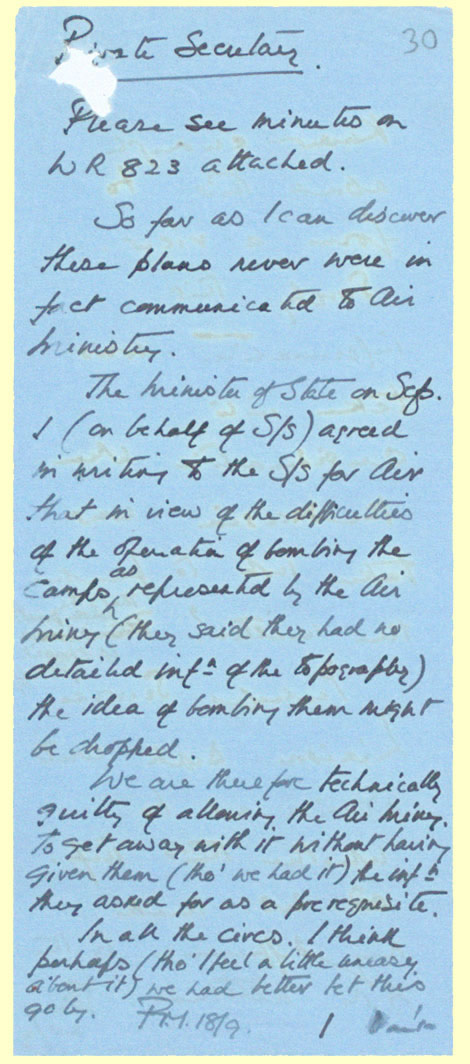 30
Private Secretary.
Please see minutes on
WR 823 attached.
So far as I can discover
these plans never were in
fact communicated to Air
Ministry.
The Minister of State on Sep.
1 (on behalf of S/S) agreed
in writing to the S/S for Air
that in view of the difficulties
of the operation of bombing the
camps as represented by the Air
Miny (they said they had no
detailed infn of the topography)
the idea of bombing them might
be dropped.
We are therefore technically
guilty of allowing the Air Miny.
to get away with it without having
given them (tho' we had it) the infn
they asked for as a prerequisite.
In all the circs. I think
perhaps (tho' I feel a little uneasy
about it) we had better let this
go by. 18/9.